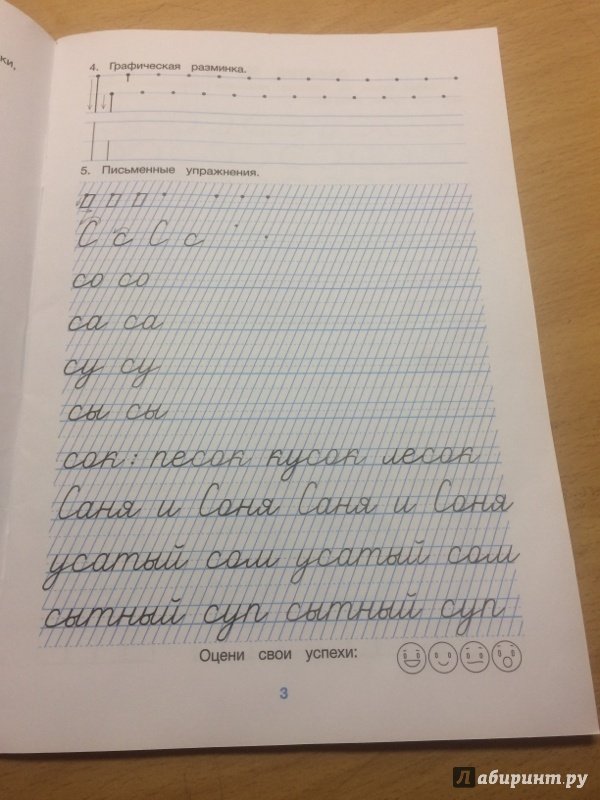 ки,
4. Графическая разминка.
5. Письменные упражнения.
С с С с
со со
са са
су су
сы сы
сок: песок кусок лесок
Саня и Соня Саня и Соня
усатый сом усатый сом
сытный суп сытный суп
Оцени свои успехи:
3
Лабиринт.ру